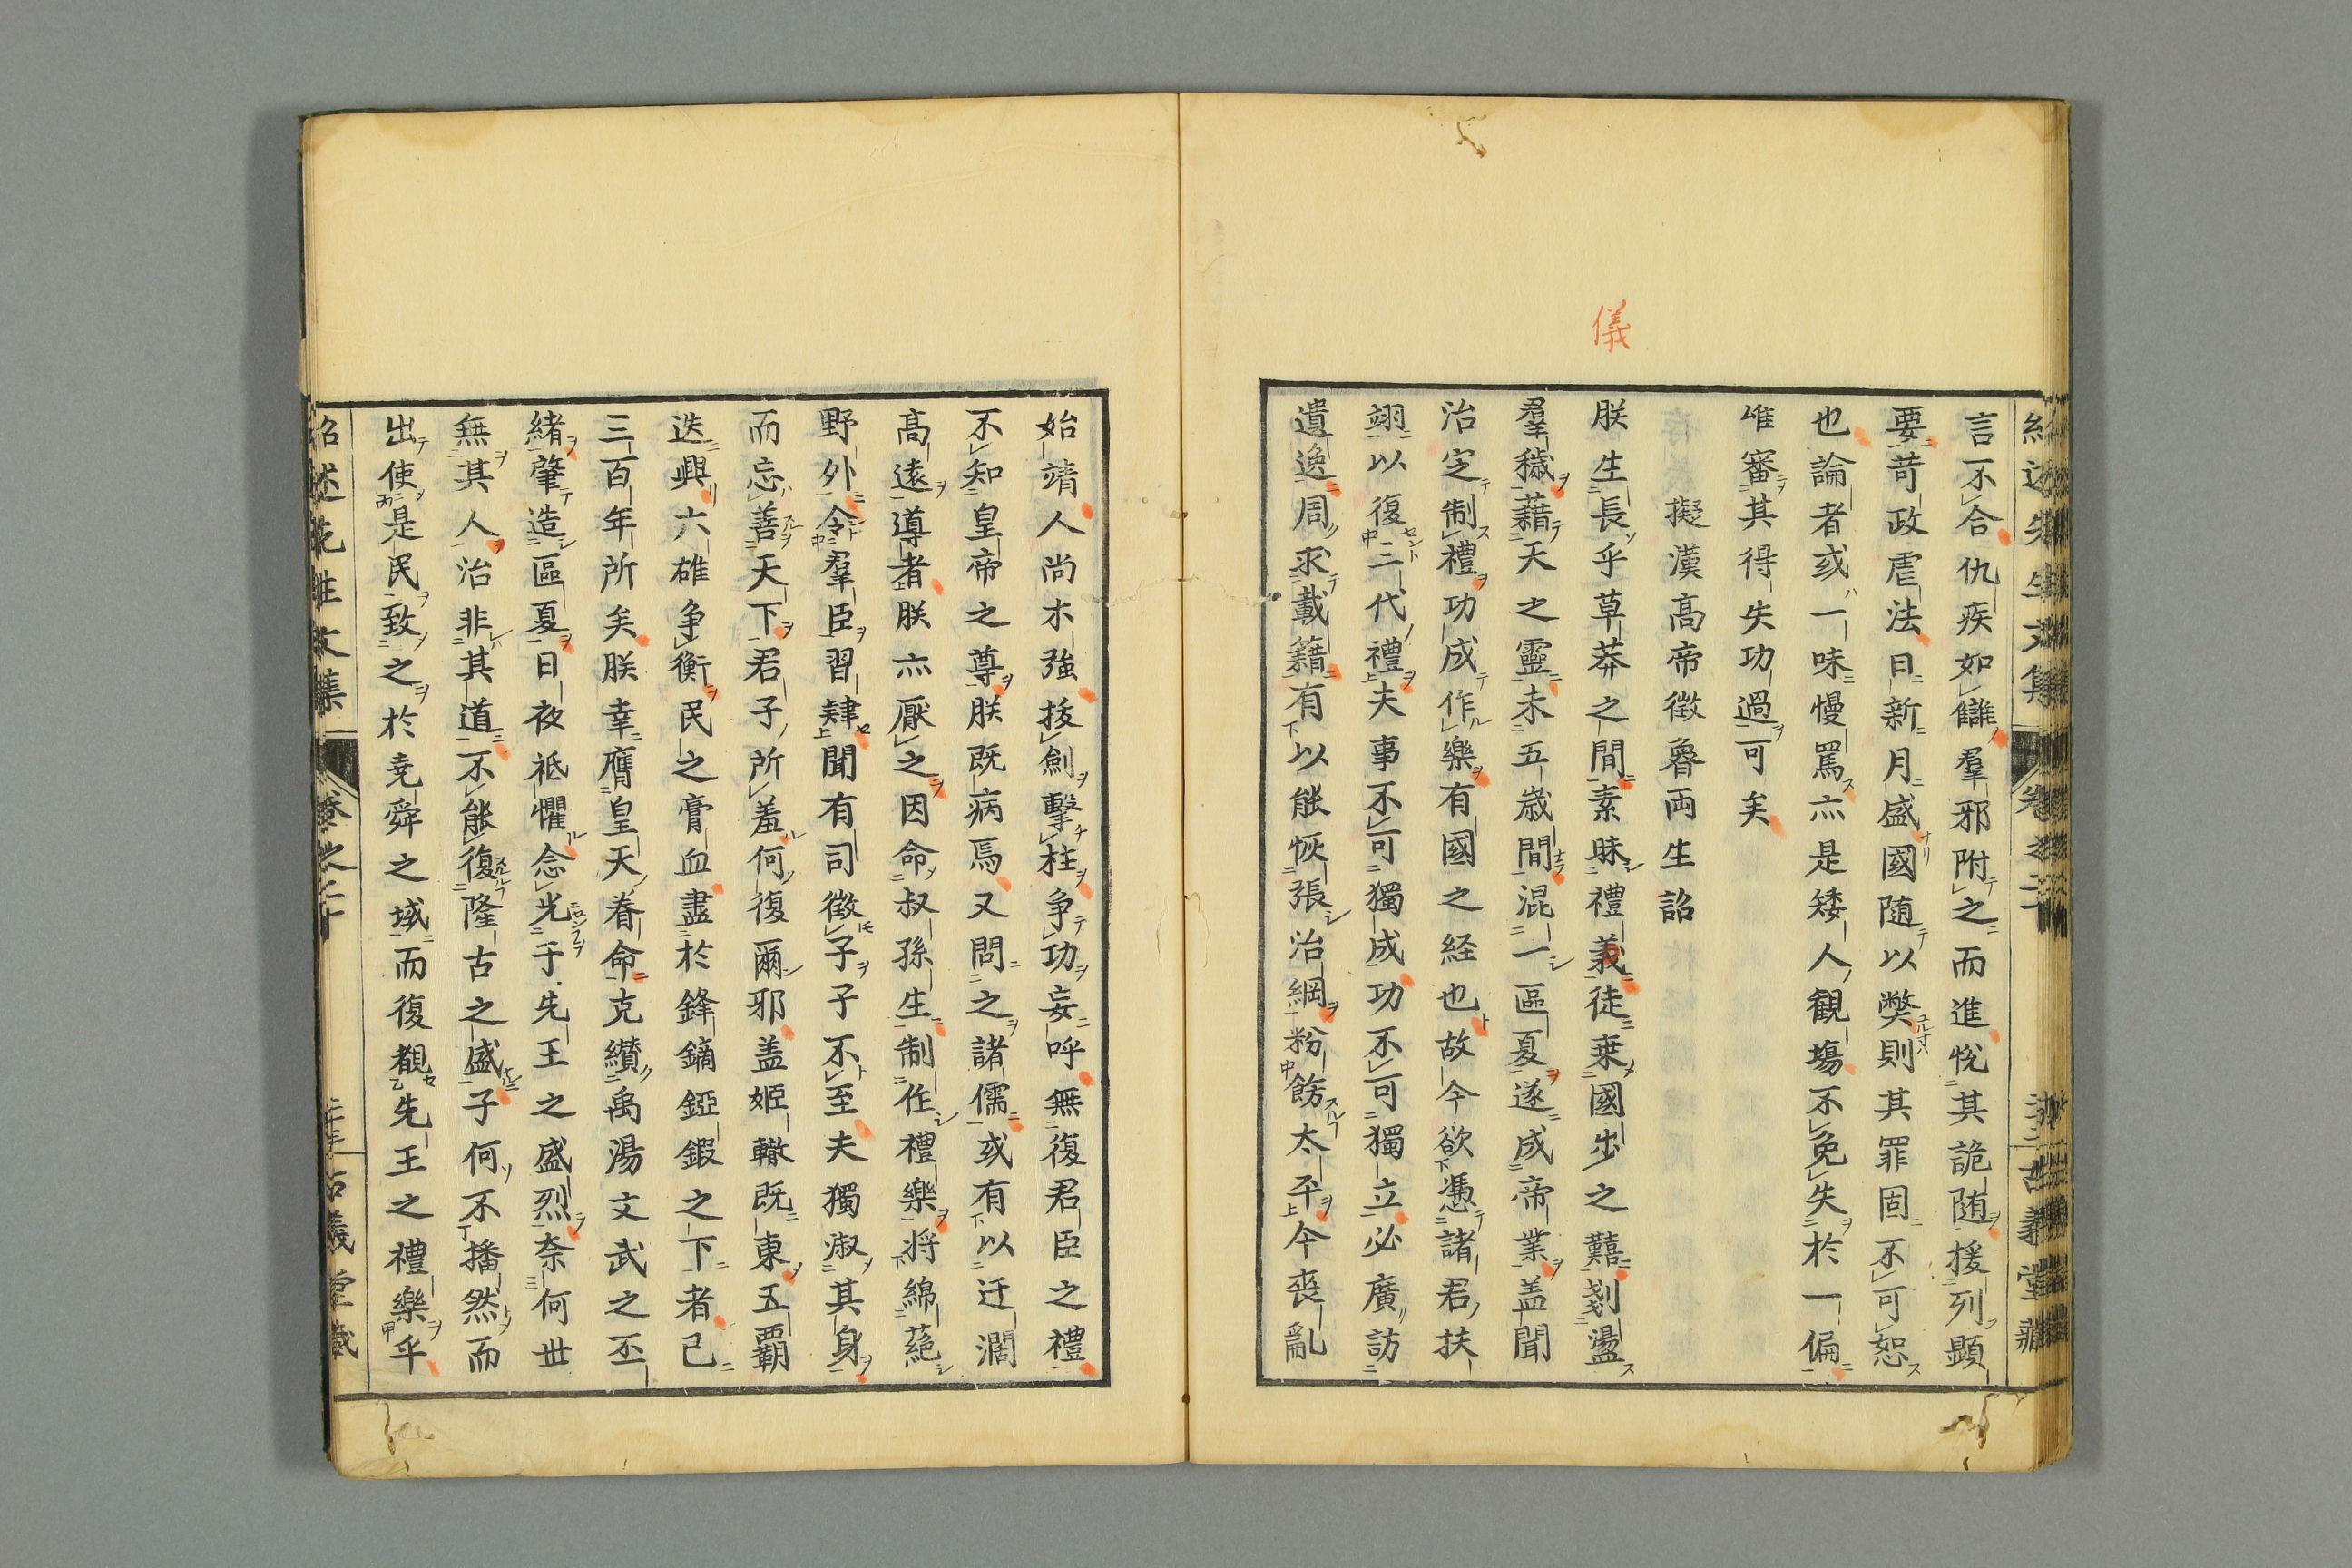 儀
言不合仇疾如讎羣邪附之而進悅其詭随援列顯
要苛政虐法日新月盛國随以獘則其罪固不可恕
也論者或一味慢罵亦是矮人観塲不免失於一偏
唯審其得失功過可矣
擬漢髙帝徵魯両生詔
朕生長乎草莽之間素昧禮義徒乗國步之難剗盪
羣穢藉天之靈未五歳間混一區夏遂成帝業盖聞
治定制禮功成作樂有國之経也故今欲憑諸君扶
翊以復三代禮夫事不可獨成功不可獨立必廣訪
遺逸周求載籍有以能恢張治綱粉餝太平今喪亂
始靖人尚木強拔劍擊柱争功妄呼無復君臣之禮
不知皇帝之尊朕既病焉又問之諸儒或有以迂濶
髙遠導者朕亦厭之因命叔孫生制作禮樂将綿蕝
野外令羣臣習肄聞有司徵子子不至夫獨淑其身
而忘善天下君子所羞何復爾邪盖姫轍既東五覇
迭興六雄争衡民之膏血盡於鋒鏑錏鍜之下者已
三百年所矣朕幸膺皇天眷命克纉禹湯文武之丕
緒肇造區夏日夜祗懼念光于先王之盛烈奈何世
無其人治非其道不能復隆古之盛子何不播然而
出使是民致之於尭舜之域而復覩先王之禮樂乎